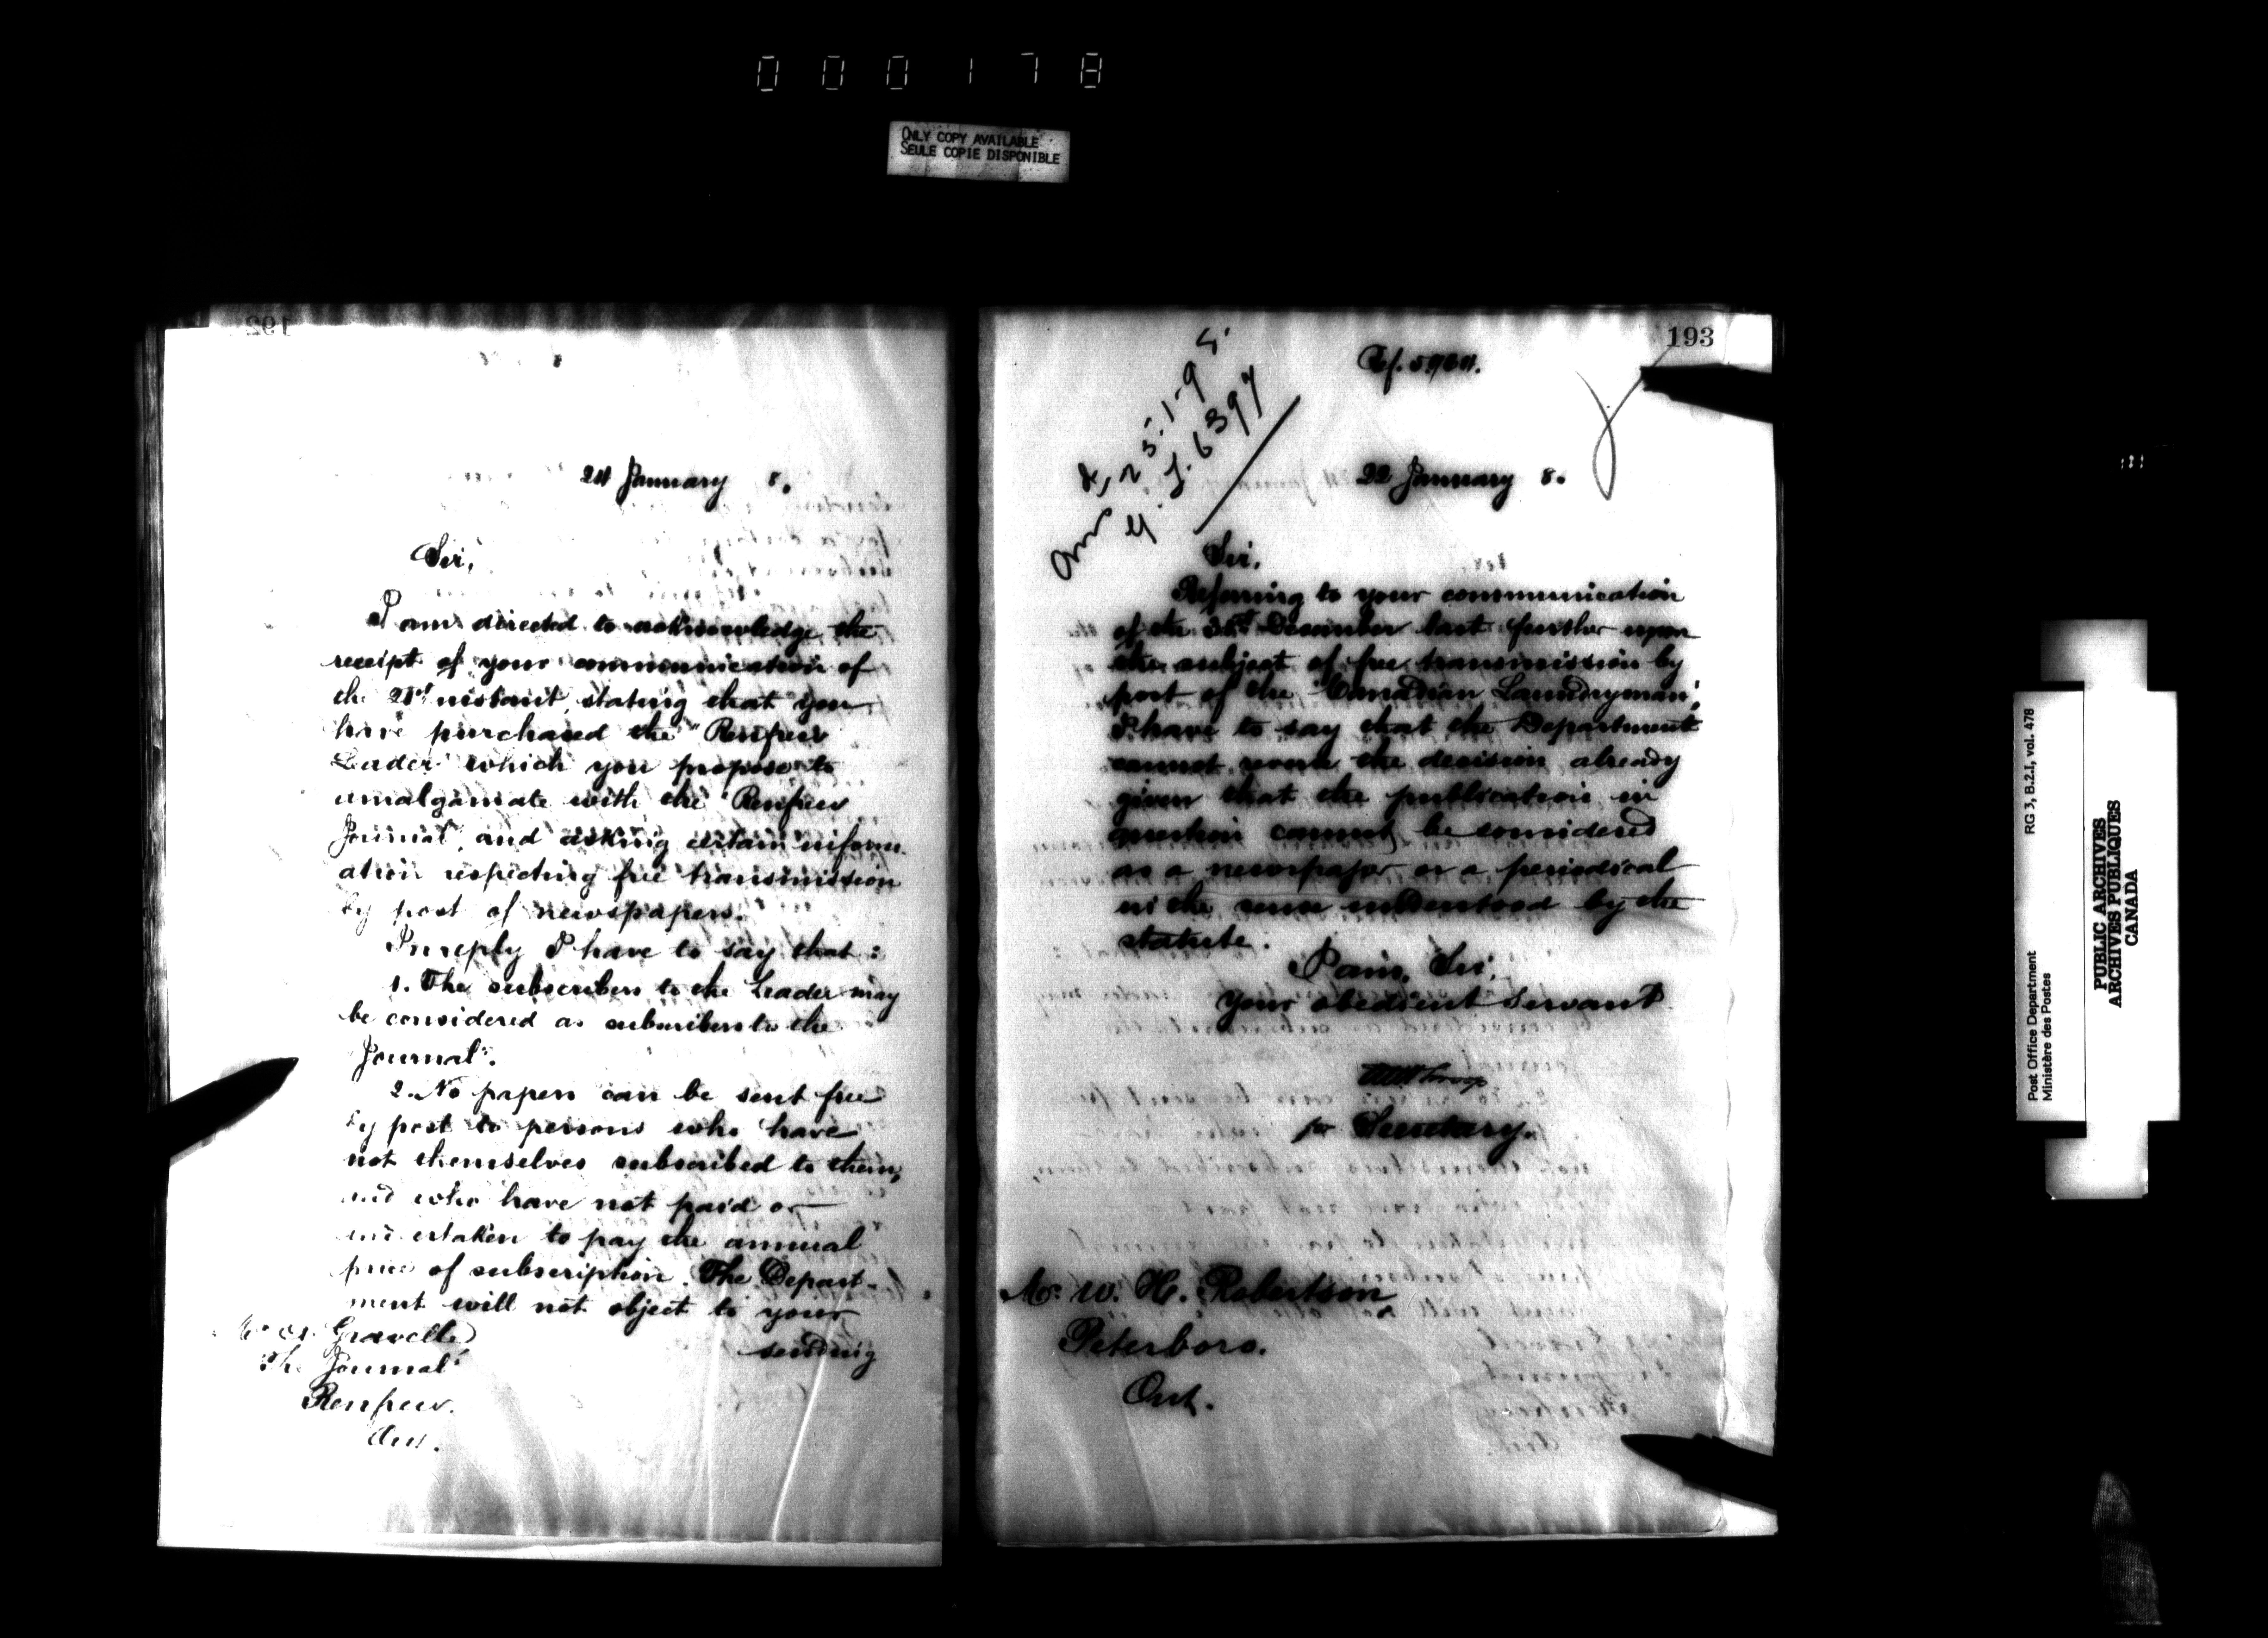 000178
ONLY COPY AVAILABLE
SEULE COPIE DISPONIBLE
192
24 January 8.
Sir,
I am directed to acknowledge the
receipt of your communication of
the 21st instant, stating that you
have purchased the "Renfrew
Leader" which you propose to
amalgamate with the "Renfrew
Journal", and asking certain inform-
ation respecting free transmission
by post of newspapers.
In reply I have to say that:
1. The subscribers to the Leader may
be considered as subscribers to the
Journal".
2. No papers can be sent free
by post to persons who have
not themselves subscribed to them,
and who have not paid or
undertaken to pay the annual
price of subscription. The Depart-
ment will not object to your
sending
Gravelle
The Journal"
Renfrew.
Ont.
193
25.1.95.
6397
22 January 8.
Sir,
Referring to your communication
of the December last further upon
the subject of free transmission by
post of the "Canadian Laundryman",
I have to say that the Department
cannot the decision already
given that the publication in
question cannot be considered
as a newspaper or a periodical
in the sense understood by the
statute.
I am, Sir,
Your obedient Servant
for Secretary.
Mr. W. H. Robertson
Peterboro.
Ont.
Post Office Department RG 3, B.2.I, vol. 478
Ministère des Postes
PUBLIC ARCHIVES
ARCHIVES PUBLIQUES
CANADA